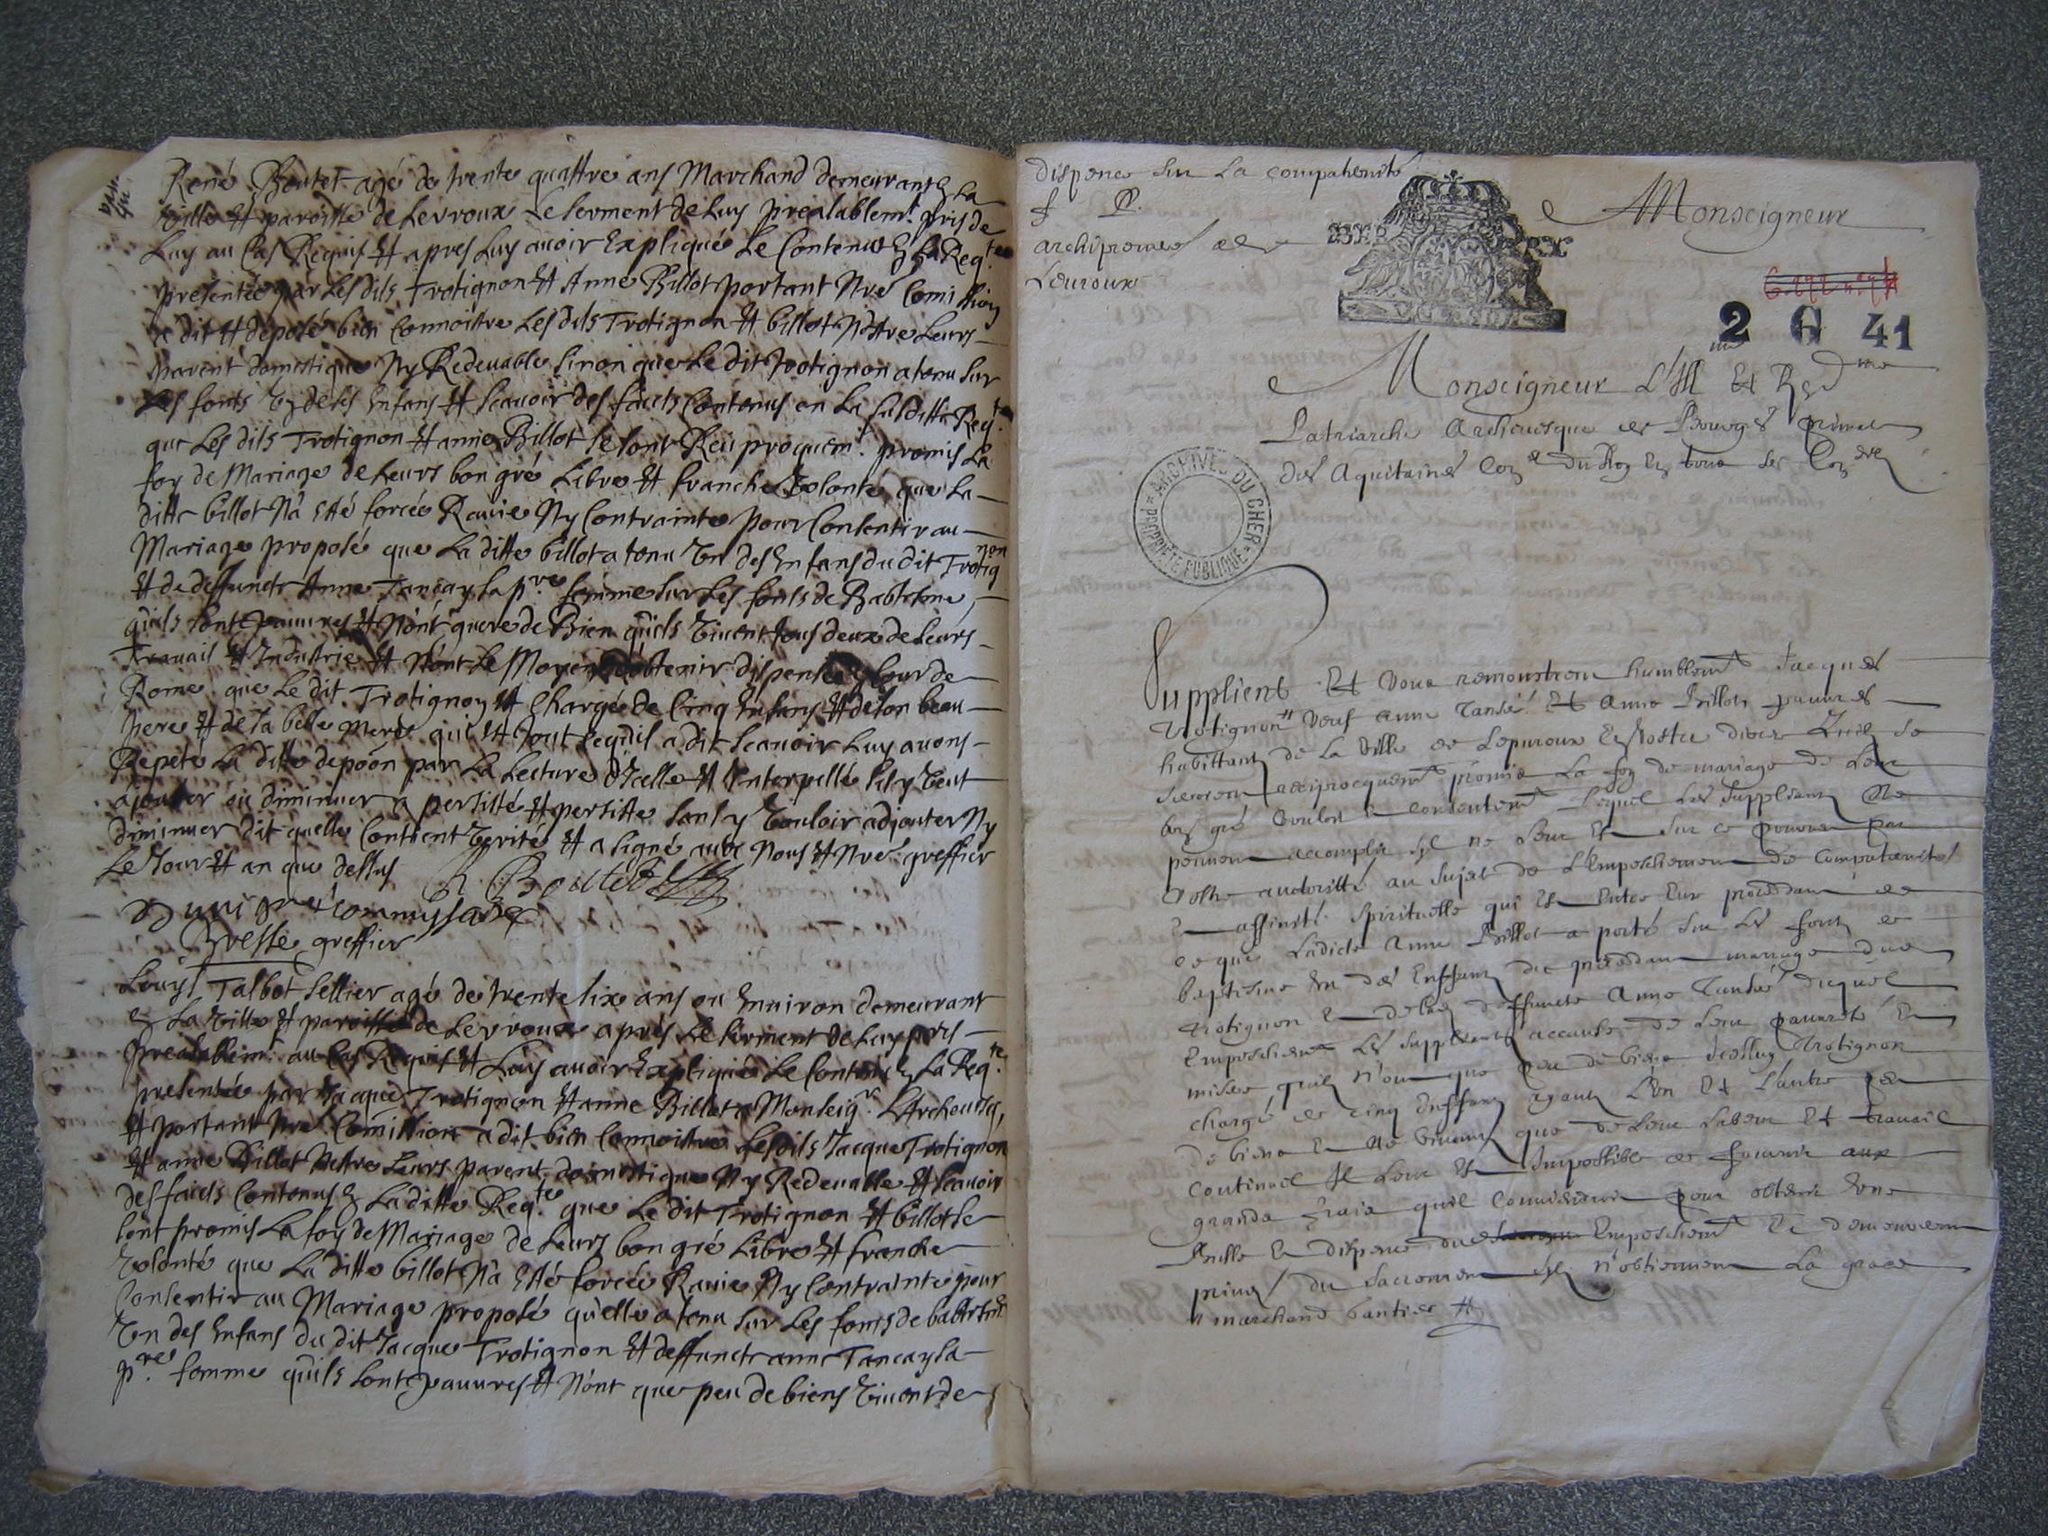 René Boutet agé de trente quattre ans Marchand demeurant en La
Ville et paroisse de Levroux Le serment de Luy prealablemt. pris de
Luy au Cas Requis et apres Luy avoir Expliqué Le Contenut en La Reqte.
presentée par Lesdits Trotignon et Anne Billot portant Nre Comission
a dit et deposé bien Connoistre Lesdits Trotignon et billot N'estre Leurs
parent domestique Ny Redevable sinon que Le dit Trotignon a tenu sur
Les fonts Un de ses Enfans et scavoir des faicts Contenus en La susditte Reqte.
que Les dits Trotignon et anne Billot se sont Reciproquemt. promis La
foy de Mariage de Leurs bon gré Libre et franche Volonté, que La
ditte billot N'a esté forcée Ravie Ny Contrainte pour Consentir au
Mariage proposé que La ditte billot a tenu Un des Enfans du dit Trotignon
et de deffuncte Anne Tancay sa pre. femme sur Les fonts de Babtesme,
quils sont pauvres et N'ont guere de Bien quils Vivent tous deux de Leurs
Travail et Industrie et N'ont Le Moyen d'obtenir dispense en Cour de
Rome que Le dit Trotignon est Chargée de Cinq Enfans et de son beau
pere et de sa belle mere qui est tout ce qu'il a dit scavoir Luy avons
Repeté La ditte depoôn par La Lecture d'Icelle et Interpellé s'il y Veut
ajouter ou diminuer a persisté et persiste sans y Vouloir adjouter Ny
diminuer dit quelle Contient Verité et a signé avec Nous et Nre. greffier
Le Jour et an que dessus R. Boutet
commissaire
Bresse greffier
Louys Talbot sellier agé de trente six ans ou Environ demeurant
en La Ville et paroisse de Levroux apres Le serment de Luy pris
prealablemt. au Cas Requis et Luy avoir Expliqué Le Contenu en La Reqte.
presentée par Jacque Trotignon et anne Billot a Monseigr. L'Archevesq,
et portant Nre Comission a dit bien Connoistre Lesdits Jacque Trotignon
et anne Billot N'estre Leurs parent, domestique Ny Redevable et scavoir
des faicts Contenus en La ditte Reqte. que Le dit Trotignon et billot se
sont promis La foy de Mariage de Leurs bon gré Libre et franche
Volonté que La ditte billot N'a esté forcée Ravie Ny Contrainte pour
Consentir au Mariage proposé qu'elle a tenu sur Les fonts de babtesme
Un des Enfans du dit Jacque Trotignon et deffuncte anne Tancay sa
pre. femme quils sont pauvres et N'ont que peu de biens Vivent de
dispence sur La compaternité
archiprevé de
Levroux
Monseigneur
2 G 41
Monseigneur L'Ill me Et Rev me
Patriarche Archevesque de Bourges primat
des Aquitaines Con er du Roy en tous ses Con seils
ARCHIVES DU CHER
PROPRIÉTÉ PUBLIQUE
Supplient Et vous remonstrent humblement Jacques
Trotignon Veuf anne Tansé Et Anne Billot pauvres
habittans de La Ville de Lepvroux En Vostre diocese Quilz se
seroient reciprocquemt promis La foy de mariage de Leur
bon gré Voulonté consentemt Lequel Les supplians Ne
peuvent accomplir sil ne Leur Est sur ce pourveu par
Vostre authoritté au sujet de L'Empeschement de Compaternité
Et affinité spirituelle qui Est Entre Eux procedant de
ce que Ladicte Anne Billot a porté sur Les fons de
baptesme Un des Enffans du precedant mariage dud
Trotignon Et de lad deffuncte Anne Tansé duquel
Empeschement Les supplians accause de Leur pauvreté Et
misere quilz n'ont que peu de biens Icelluy Trotignon
chargé de cinq Enffans ayans L'Un Et L'autre peu
de biens Et Ne vivans que de Leur Labeur Et travail
continuel Il Leur Est Impossible de fournir aux
grands frais quil Conviendroit pour obtenir Une
Bulle Et dispence dud Empeschemt Et demeureroient
privez du sacrement silz n'obtiennent La grace
marchand Gantier